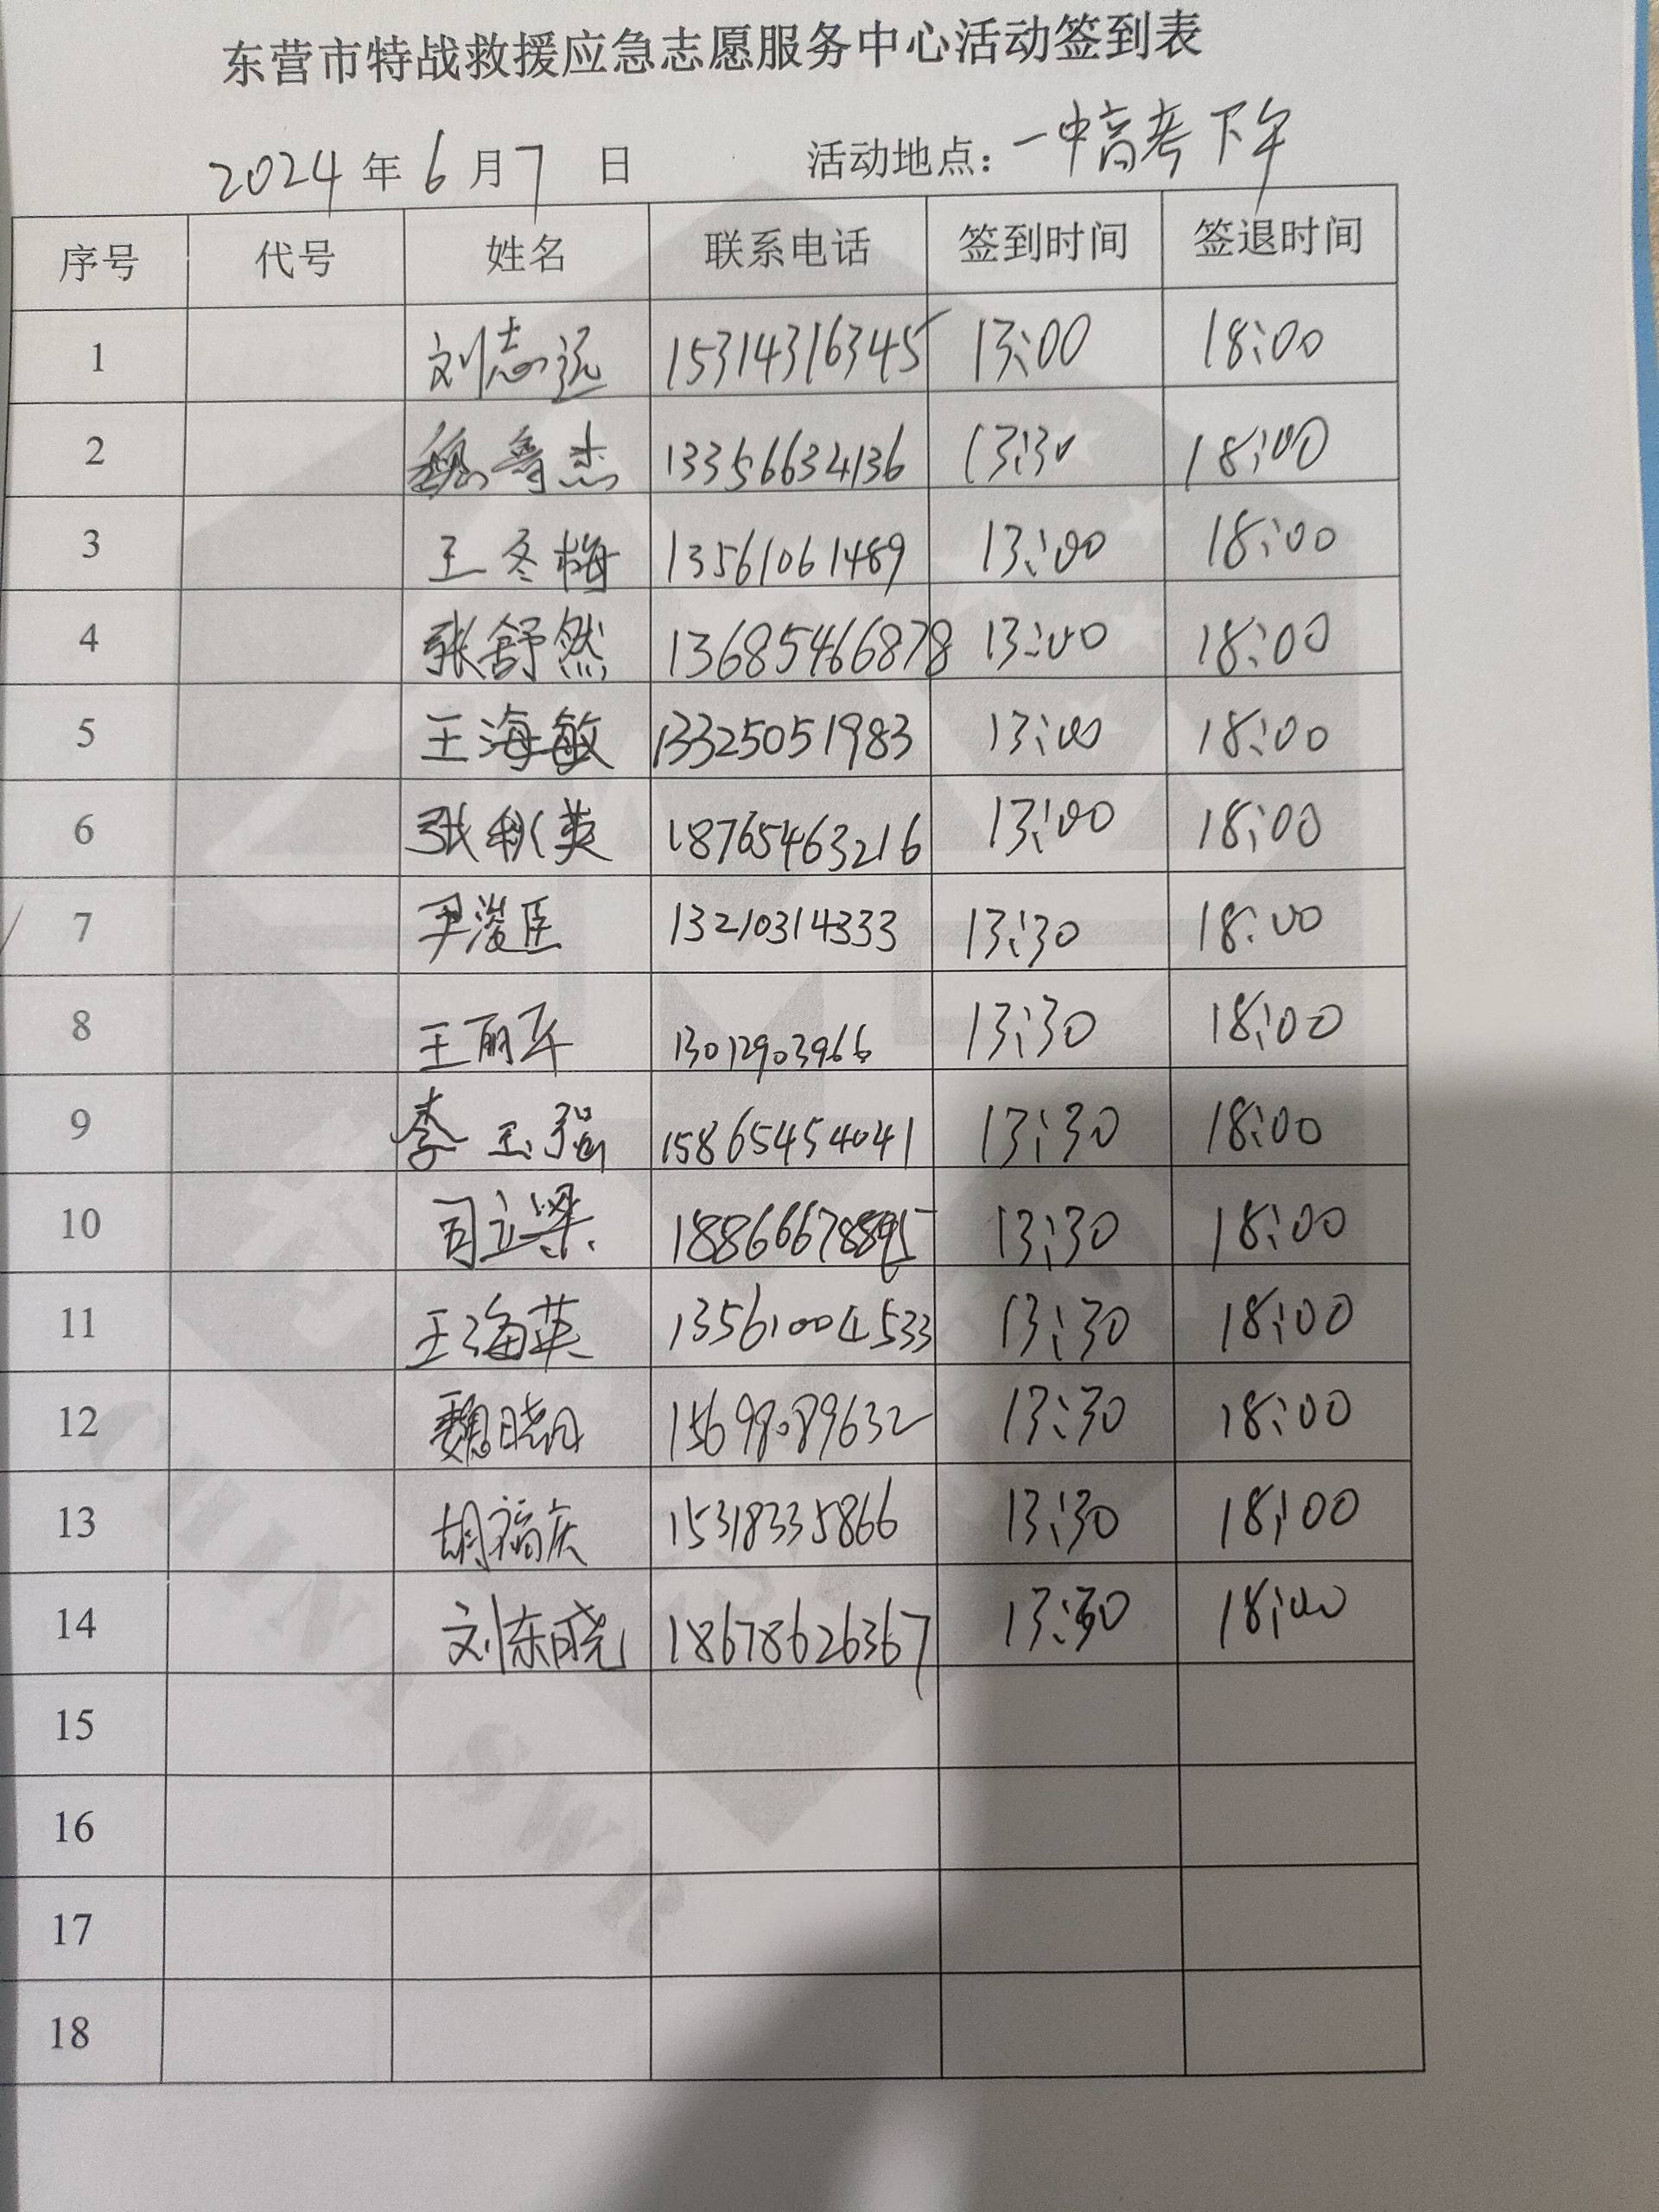 东营市特战救援应急志愿服务中心活动签到表
2024年6月7日 活动地点：一中高考下午
序号 代号 姓名 联系电话 签到时间 签退时间
1 刘志远 15314316345 13:00 18:00
2 魏鲁杰 13356634136 13:30 18:00
3 王冬梅 13561061489 13:00 18:00
4 张舒然 13685466878 13:00 18:00
5 王海敏 13325051983 13:00 18:00
6 张秋英 18765463216 13:00 18:00
7 尹浚臣 13210314333 13:30 18:00
8 王丽军 13012903966 13:30 18:00
9 李玉强 15865454041 13:30 18:00
10 司立梁 13:30 18:00
11 王海英 13561004533 13:30 18:00
12 魏晓丹 15698089632 13:30 18:00
13 胡福庆 15318335866 13:30 18:00
14 刘东晓 18678626367 13:30 18:00
15
16
17
18
CHINA SWR